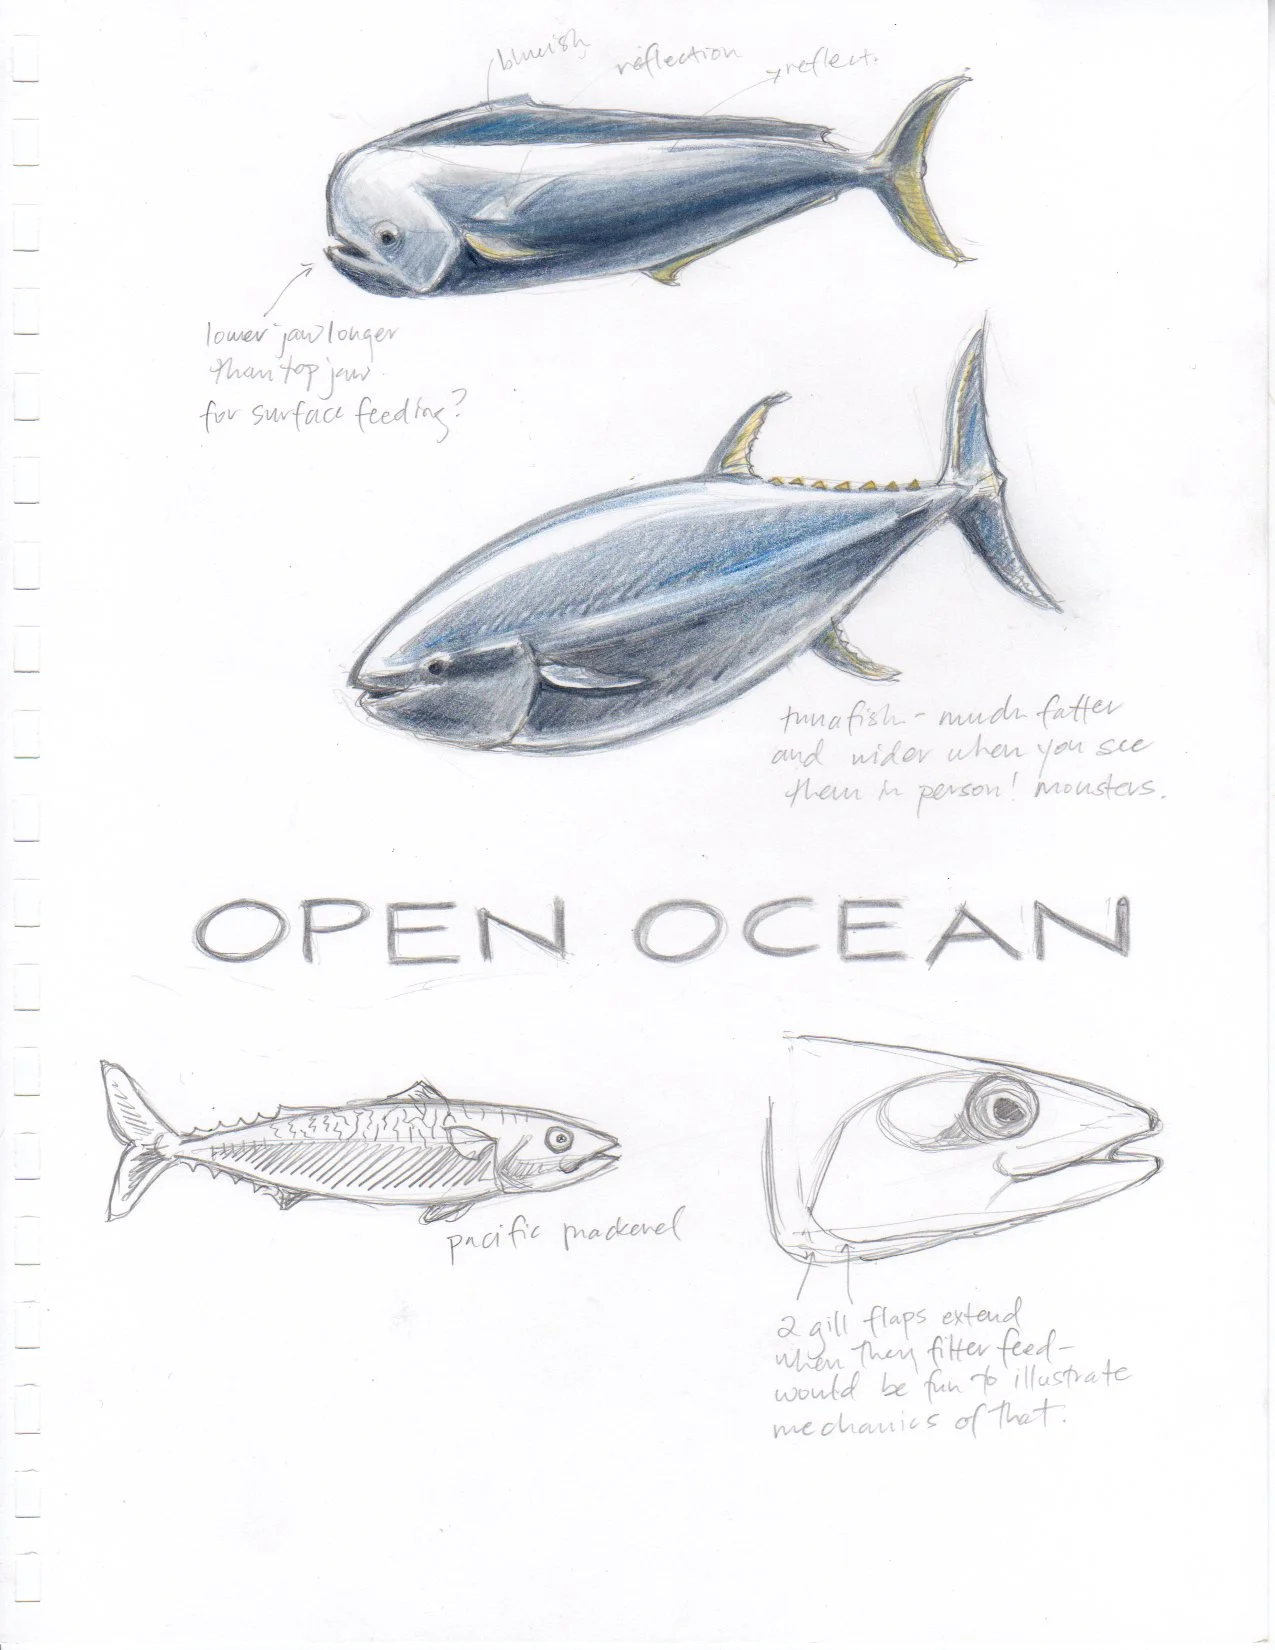 bluish
reflection
reflect.
lower jaw longer
than top jaw
for surface feeding?
tunafish - much fatter
and wider when you see
them in person! monsters.
OPEN OCEAN
pacific mackerel
2 gill flaps extend
when they filter feed-
would be fun to illustrate
mechanics of that.